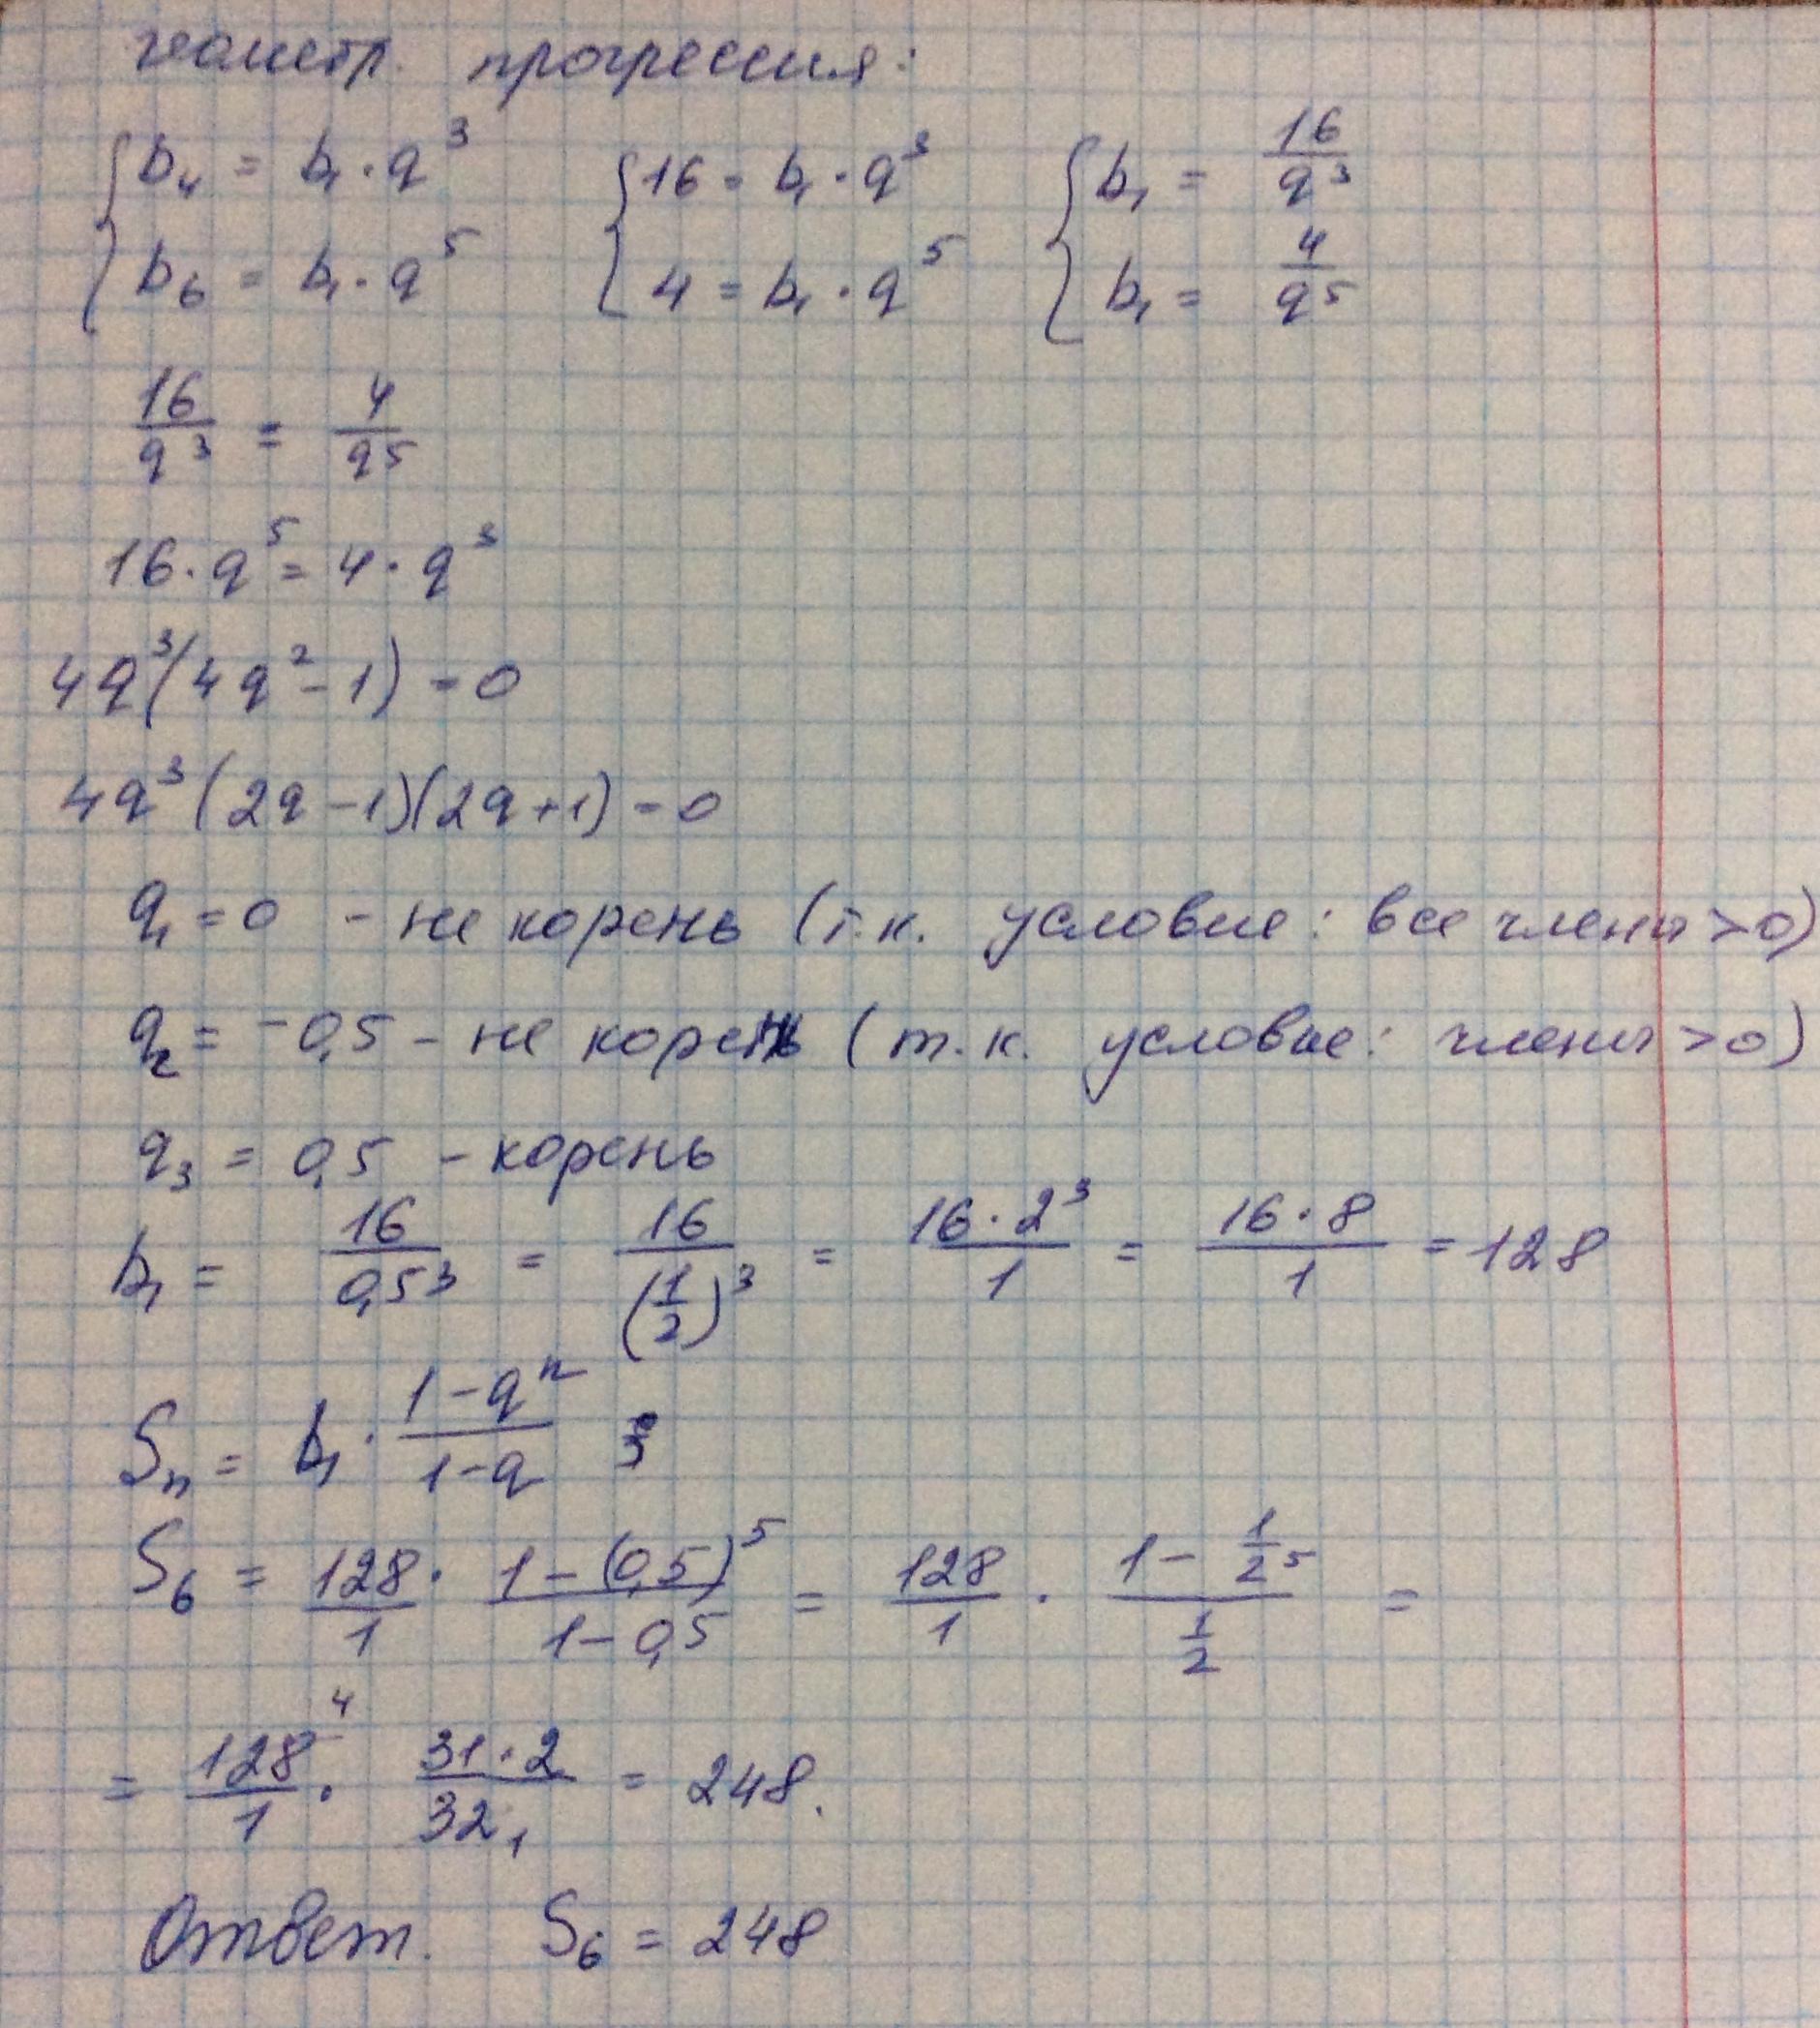 геометр. прогрессия:
{ b₄ = b₁ · q³ { 16 = b₁ · q³ { b₁ = 16/q³
{ b₆ = b₁ · q⁵ { 4 = b₁ · q⁵ { b₁ = 4/q⁵
16/q³ = 4/q⁵
16 · q⁵ = 4 · q³
4q³(4q² - 1) = 0
4q³(2q - 1)(2q + 1) = 0
q₁ = 0 - не корень (т.к. условие: все члены > 0)
q₂ = -0,5 - не корень (т.к. условие: члены > 0)
q₃ = 0,5 - корень
b₁ = 16/0,5³ = 16/(1/2)³ = 16 · 2³/1 = 16 · 8/1 = 128
Sₙ = b₁ · (1 - qⁿ)/(1 - q)
S₆ = 128/1 · (1 - (0,5)⁵)/(1 - 0,5) = 128/1 · (1 - 1/2⁵)/(1/2) =
= 128⁴/1 · 31 · 2/32₁ = 248.
Ответ. S₆ = 248